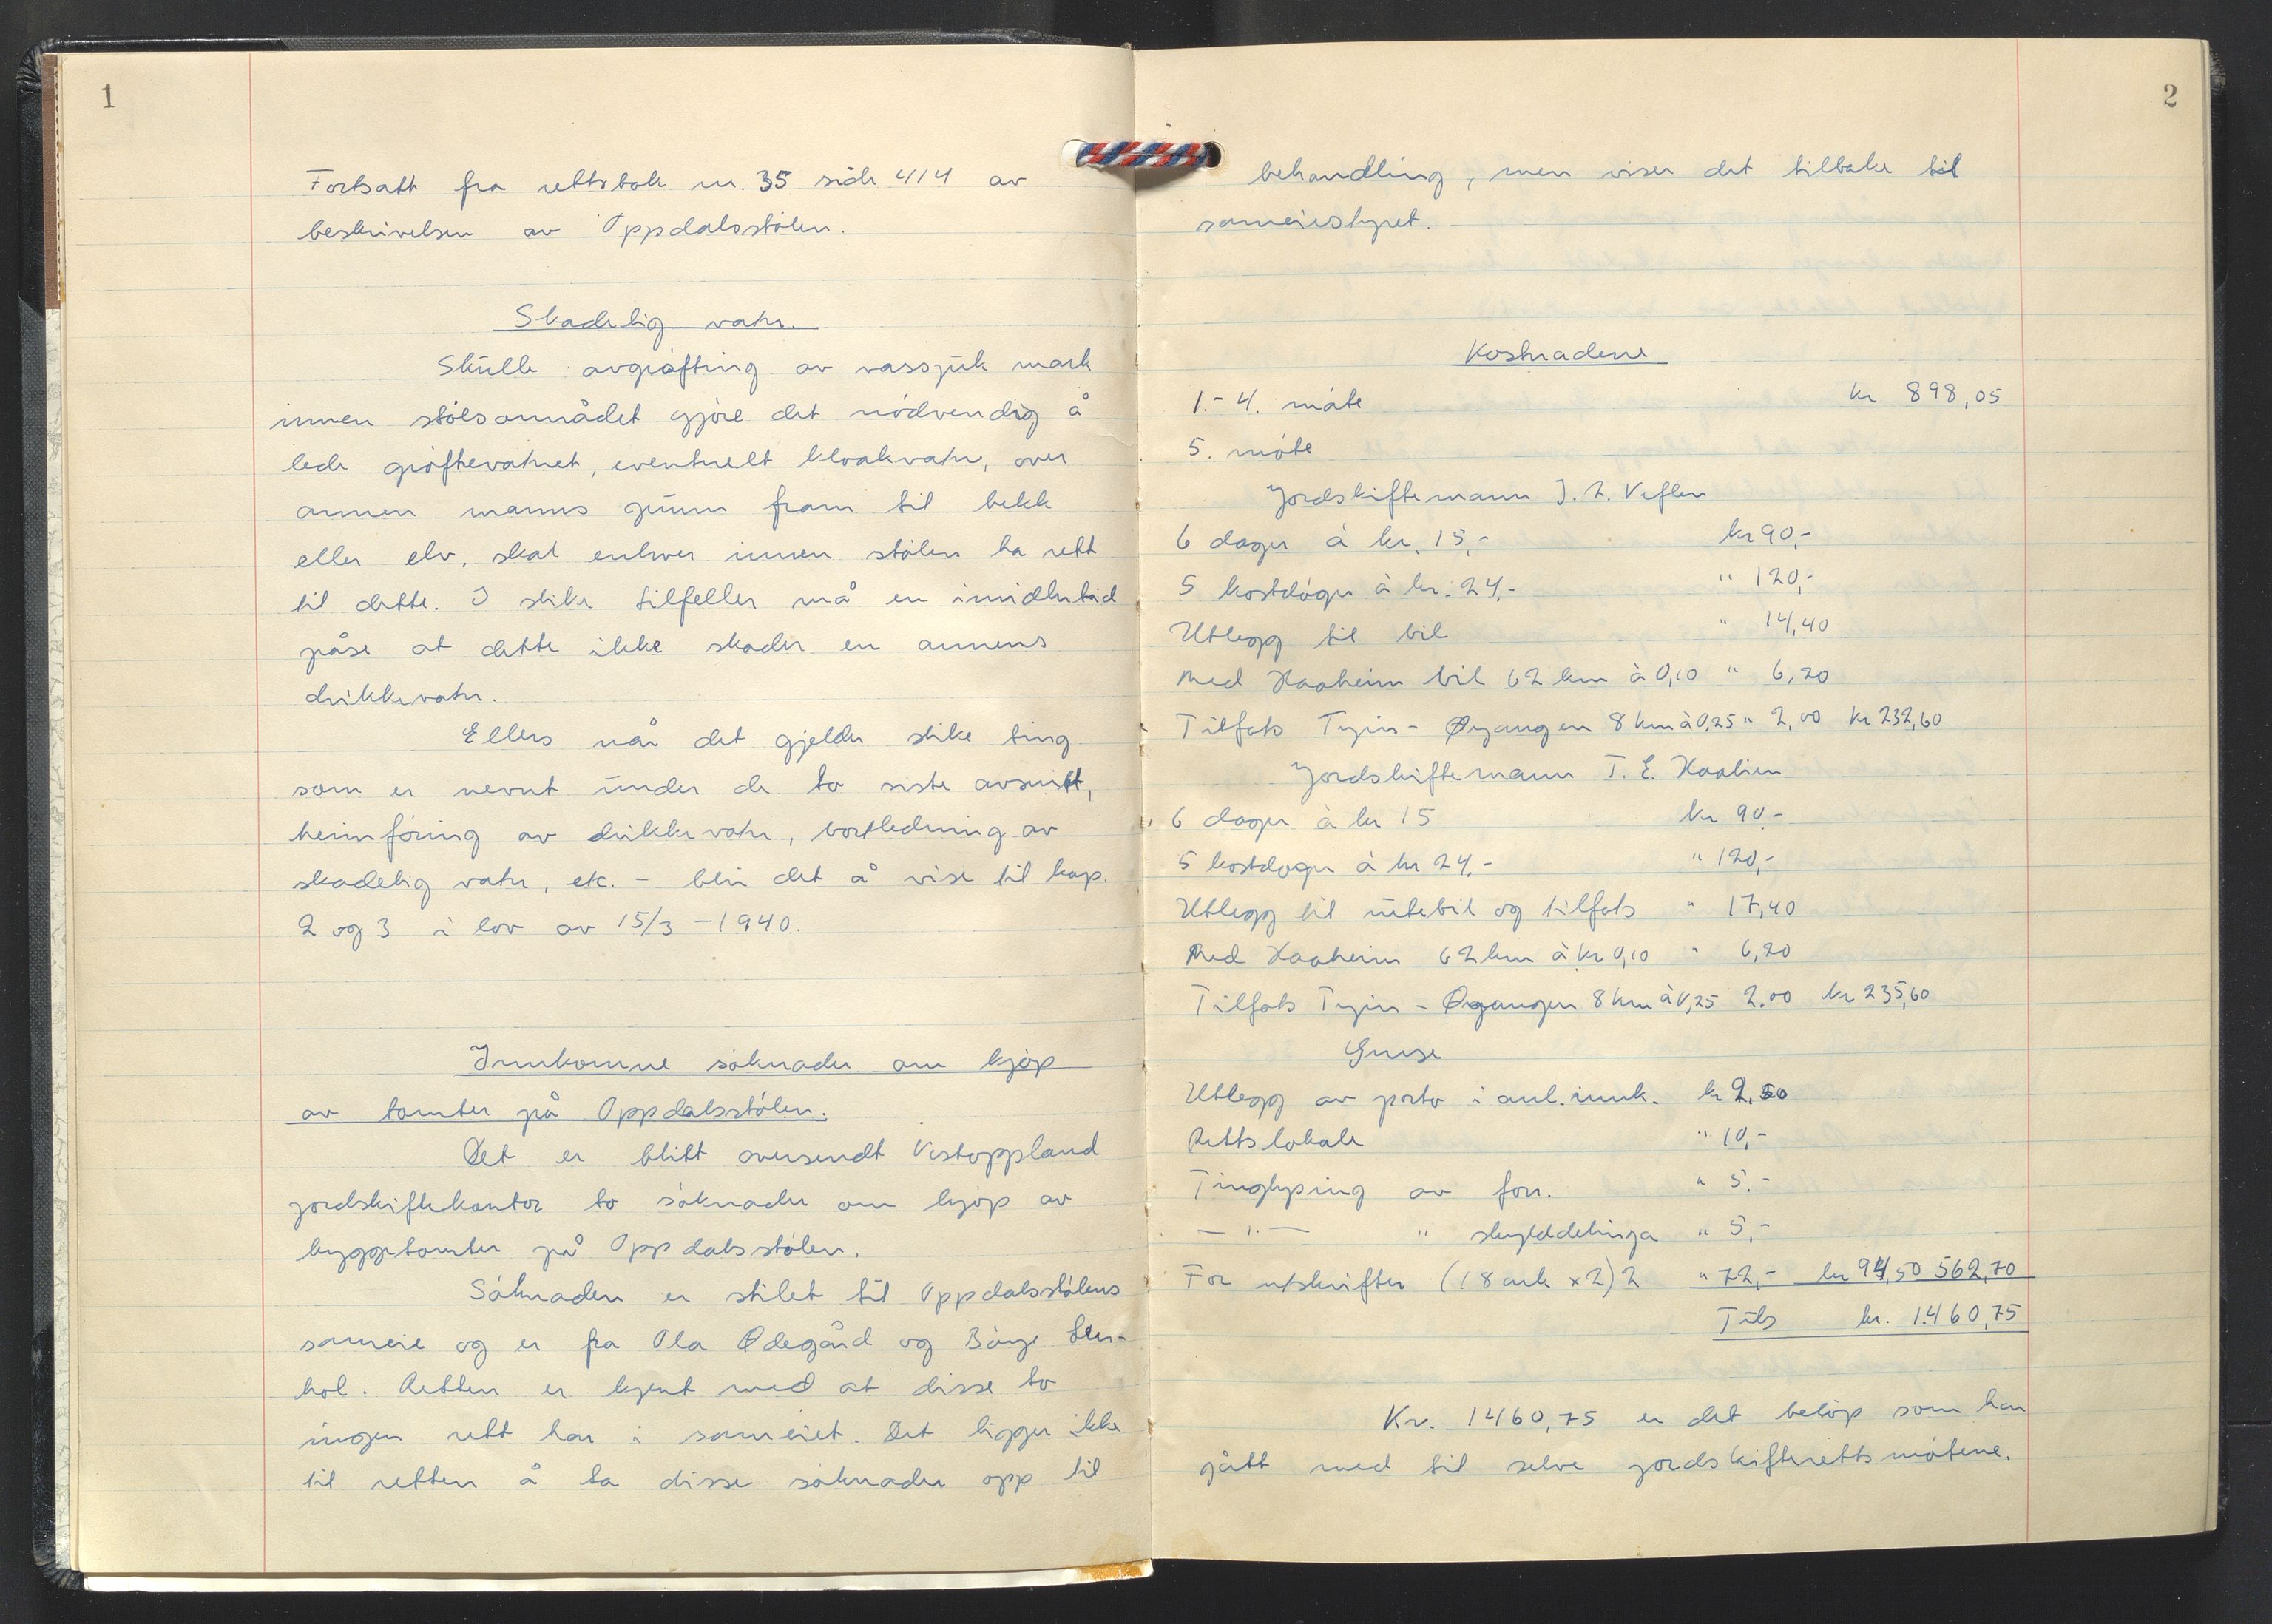 1
Fortsatt fra rettsbok nr. 35 side 414 av
beskrivelsen av Oppdalsstølen.
Skadelig vatn.
Skulle avgrøfting av vassjuk mark
innen stølsområdet gjøre det nødvendig å
lede grøftevatnet, eventuelt kloakvatn, over
annen manns grunn fram til bekk
eller elv, skal enhver innen stølen ha rett
til dette. I slike tilfeller må en imidlertid
påse at dette ikke skader en annens
drikkevatn.
Ellers når det gjelder slike ting
som er nevnt under de to siste avsnitt,
heimføring av drikkevatn, bortledning av
skadelig vatn, etc. - blir det å vise til kap.
2 og 3 i lov av 15/3 - 1940.
Innkomne søknader om kjøp
av tomter på Oppdalsstølen.
Det er blitt oversendt Vestoppland
jordskiftekontor to søknader om kjøp av
byggetomter på Oppdalsstølen.
Søknaden er stilet til Oppdalsstølens
sameie og er fra Ola Ødegård og Börge
hol. Retten er kjent med at disse to
ingen rett har i sameiet. Det ligger ikke
til retten å ta disse søknader opp til
2
behandling, men viser det tilbake til
sameiestyret.
Kostnadene
1.- 4. møte kr 898,05
5. møte
Jordskiftemann J. T. Veflen
6 dager à kr. 15,- kr 90,-
5 kostdøgn à kr. 24,- " 120,-
Utlegg til bil " 14,40
Med Haaheim bil 62 km à 0,10 " 6,20
Tilfots Tyin - Øyangen 8 km à 0,25 " 2,00 kr 232,60
Jordskiftemann T. E. Haalien
6 dager à kr 15 kr 90,-
5 kostdøgn à kr 24,- " 120,-
Utlegg til rutebil og tilfots " 17,40
Med Haaheim 62 km à kr 0,10 " 6,20
Tilfots Tyin - Øyangen 8 km à 0,25 2.00 kr 235,60
Ymse
Utlegg av porto i anl. innk. kr 2,50
Rettslokale " 10,-
Tinglysing av forr. " 5.-
- " - " skylddelinga " 5,-
For utskrifter (18 ark x 2) 2 " 72,- kr 94,50 562,70
Tils kr. 1.460,75
Kr. 1460,75 er det beløp som har
gått med til selve jordskifterettsmøtene.